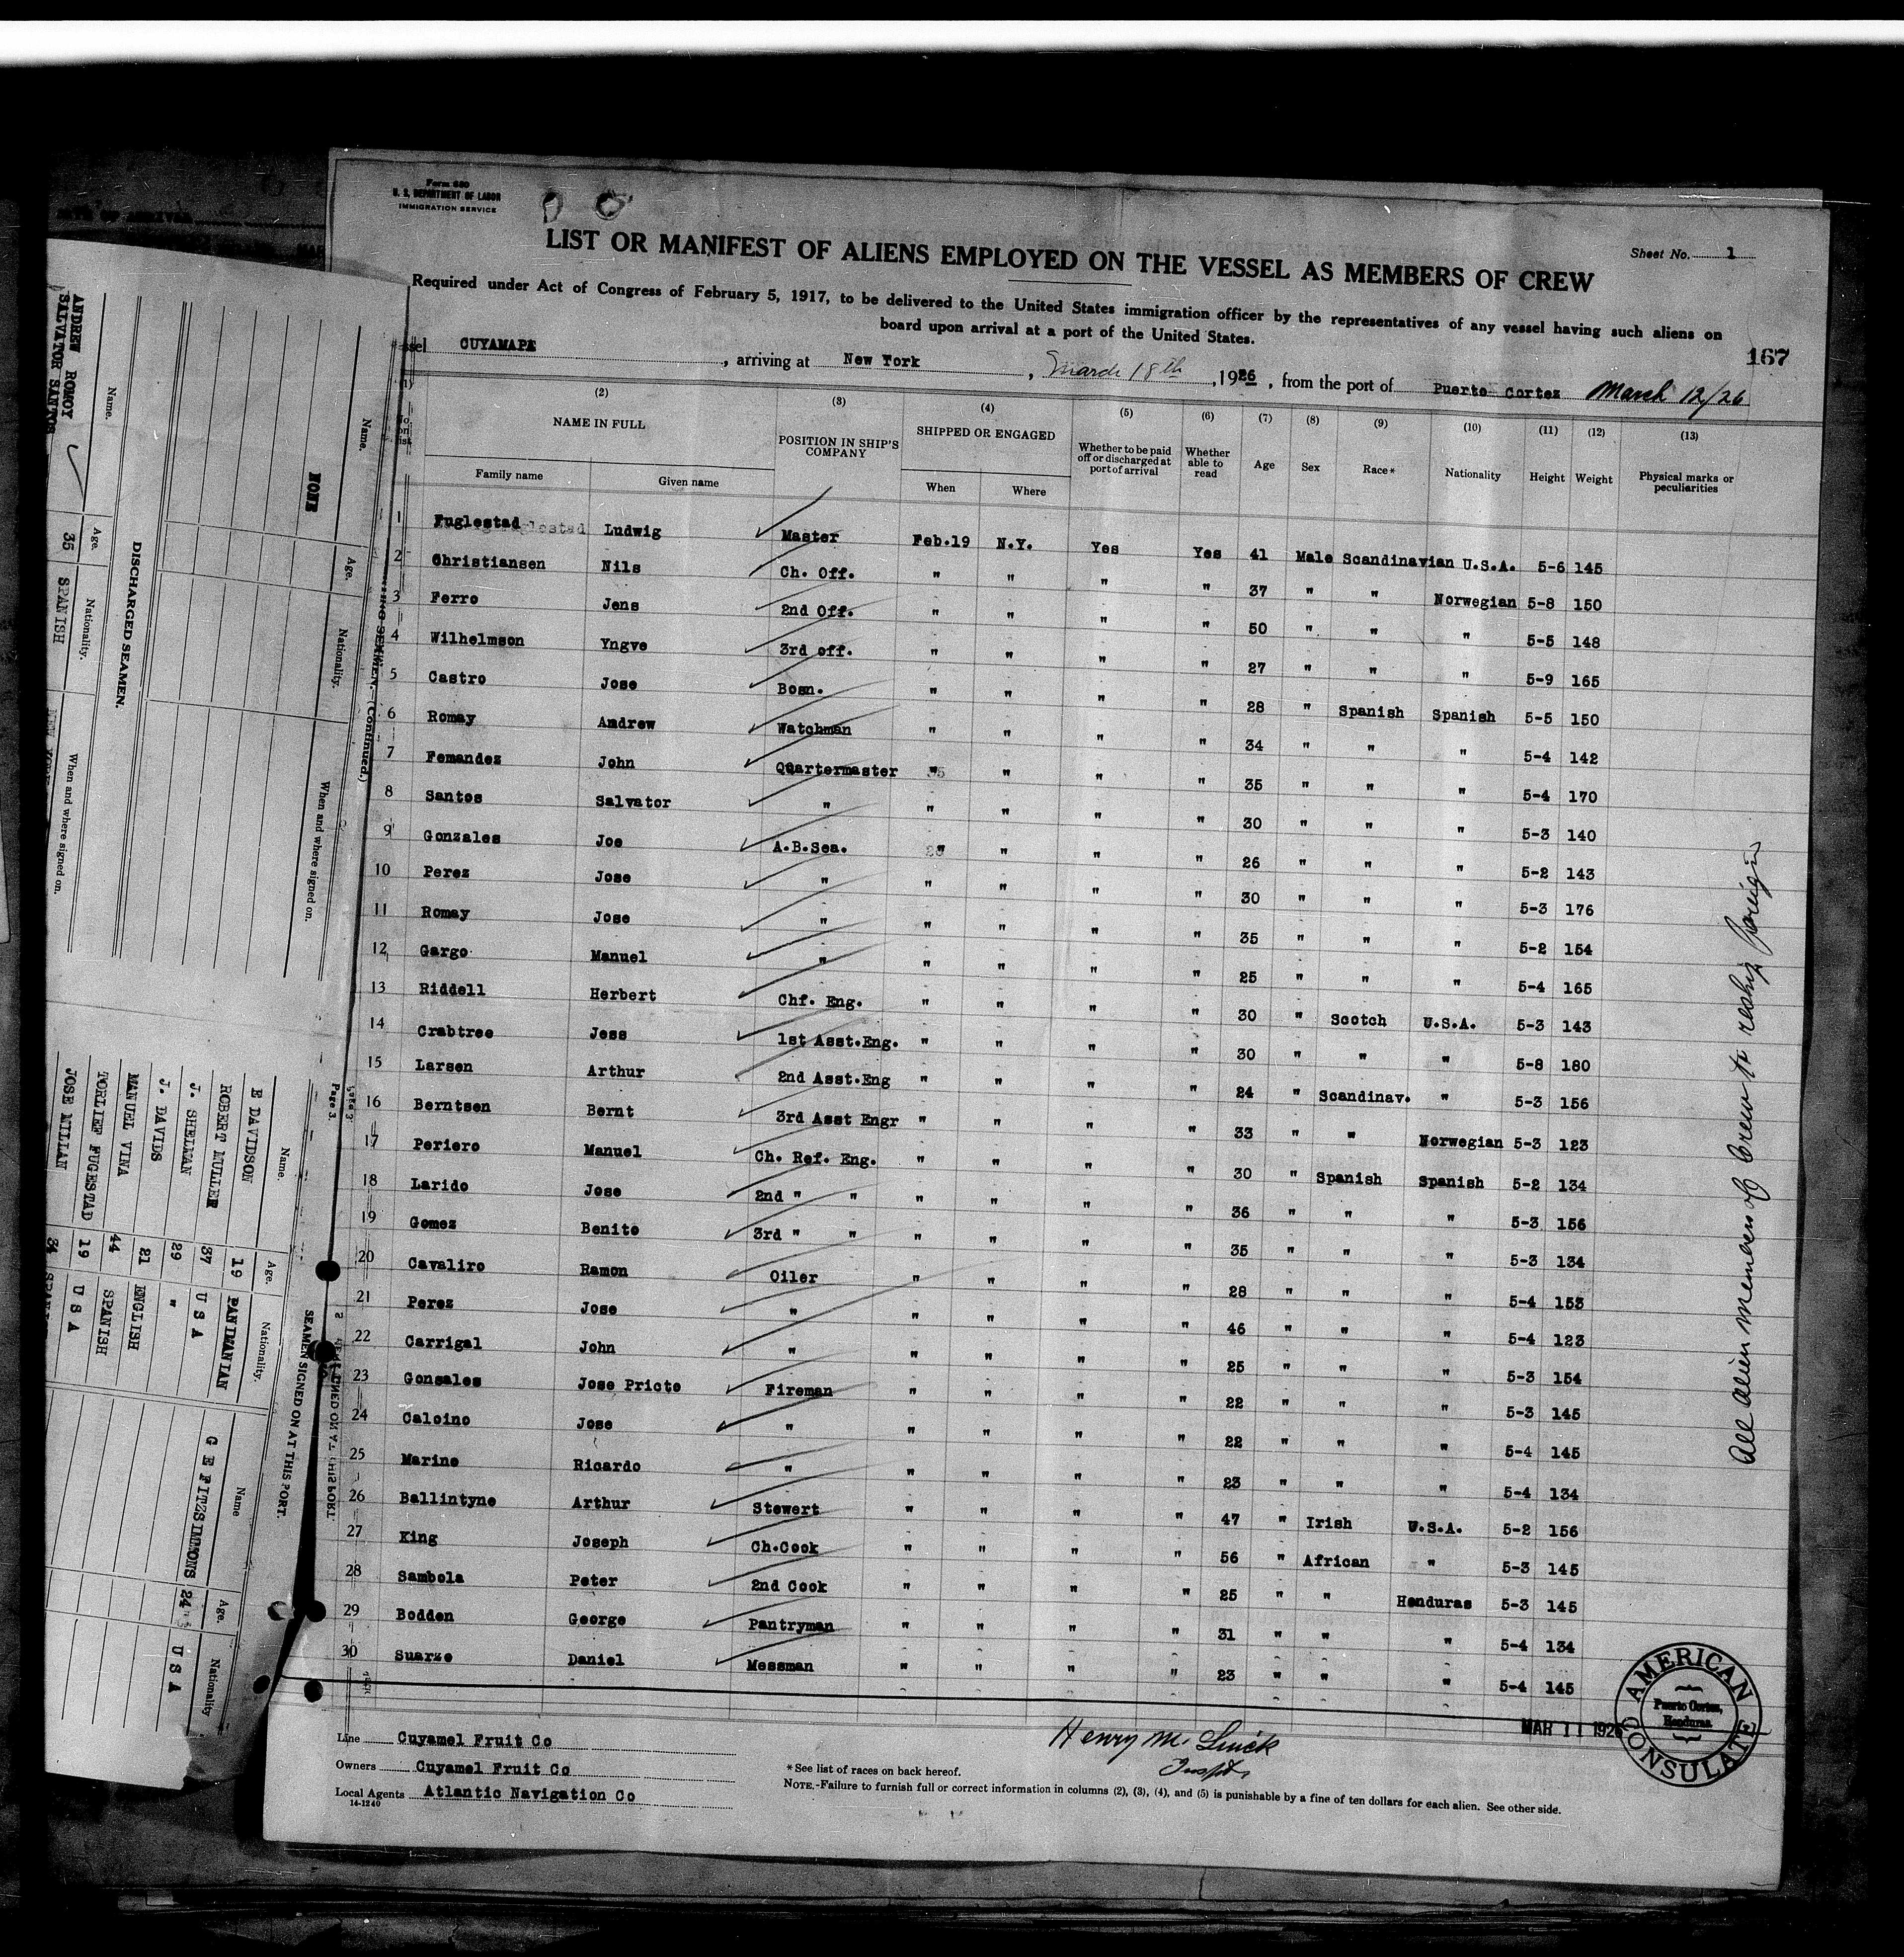 Form 680
U. S. DEPARTMENT OF LABOR
IMMIGRATION SERVICE
LIST OR MANIFEST OF ALIENS EMPLOYED ON THE VESSEL AS MEMBERS OF CREW
Sheet No. 1
Required under Act of Congress of February 5, 1917, to be delivered to the United States immigration officer by the representatives of any vessel having such aliens on
board upon arrival at a port of the United States.
167
CUYAMAPA, arriving at New York, March 18th, 1926, from the port of Puerto Cortez March 12/26
(2) (3) (4) (5) (6) (7) (8) (9) (10) (11) (12) (13)
NAME IN FULL POSITION IN SHIP'S COMPANY SHIPPED OR ENGAGED Whether to be paid off or discharged at port of arrival Whether able to read Age Sex Race* Nationality Height Weight Physical marks or peculiarities
Family name Given name When Where
1 Fuglestad Ludwig Master Feb.19 N.Y. Yes Yes 41 Male Scandinavian U.S.A. 5-6 145
2 Christiansen Nils Ch. Off. " " " " 37 " " Norwegian 5-8 150
3 Ferro Jens 2nd Off. " " " " 50 " " " 5-5 148
4 Wilhelmson Yngve 3rd off. " " " " 27 " " " 5-9 165
5 Castro Jose Bosn. " " " " 28 " Spanish Spanish 5-5 150
6 Romay Andrew Watchman " " " " 34 " " " 5-4 142
7 Femandez John Quartermaster " " " " 35 " " " 5-4 170
8 Santos Salvator " " " " " 30 " " " 5-3 140
9 Gonzales Joe A.B.Sea. " " " " 26 " " " 5-2 143
10 Perez Jose " " " " " 30 " " " 5-3 176
11 Romay Jose " " " " " 35 " " " 5-2 154
12 Gargo Manuel " " " " " 25 " " " 5-4 165
13 Riddell Herbert Chf. Eng. " " " " 30 " Scotch U.S.A. 5-3 143
14 Crabtree Jess 1st Asst.Eng. " " " " 30 " " " 5-8 180
15 Larsen Arthur 2nd Asst.Eng " " " " 24 " Scandinav. " 5-3 156
16 Berntsen Bernt 3rd Asst Engr " " " " 33 " " Norwegian 5-3 123
17 Periero Manuel Ch. Ref. Eng. " " " " 30 " Spanish Spanish 5-2 134
18 Larido Jose 2nd " " " " " " 36 " " " 5-3 156
19 Gomez Benito 3rd " " " " " " 35 " " " 5-3 134
20 Cavaliro Ramon Oiler " " " " 28 " " " 5-4 153
21 Perez Jose " " " " " 46 " " " 5-4 123
22 Carrigal John " " " " " 25 " " " 5-3 154
23 Gonsales Jose Pricto Fireman " " " " 22 " " " 5-3 145
24 Caloino Jose " " " " " 22 " " " 5-4 145
25 Marine Ricardo " " " " " 23 " " " 5-4 134
26 Ballintyne Arthur Stewert " " " " 47 " Irish U.S.A. 5-2 156
27 King Joseph Ch.Cook " " " " 56 " African " 5-3 145
28 Sambola Peter 2nd Cook " " " " 25 " " Honduras 5-3 145
29 Bodden George Pantryman " " " " 31 " " " 5-4 134
30 Suarze Daniel Messman " " " " 23 " " " 5-4 145
All alien members of Crew to reship foreign
AMERICAN CONSULATE
Puerto Cortes,
Honduras.
MAR 11 1926
Line Cuyamel Fruit Co
Owners Cuyamel Fruit Co
Local Agents Atlantic Navigation Co
14-1240
Henry M.
*See list of races on back hereof.
NOTE.-Failure to furnish full or correct information in columns (2), (3), (4), and (5) is punishable by a fine of ten dollars for each alien. See other side.
(Continued.)
Name. Age. Nationality. When and where signed on.
NONE
DISCHARGED SEAMEN.
Name. Age. Nationality. When and where signed on.
ANDREW ROMOY 35 SPANISH
SALVATOR SANTOS
Page 3.
SEAMEN SIGNED ON AT THIS PORT.
Name. Age. Nationality. Name Age. Nationality
E DAVIDSON 19 PANIMANIAN G E FITZSIMMONS 24 U S A
ROBERT MULLER 37 U S A
J. SHELMAN 29 "
J. DAVIDS 21 ENGLISH
MANUEL VINA 44 SPANISH
TORLIEF FUGESTAD 19 U S A
JOSE MILLAN 34